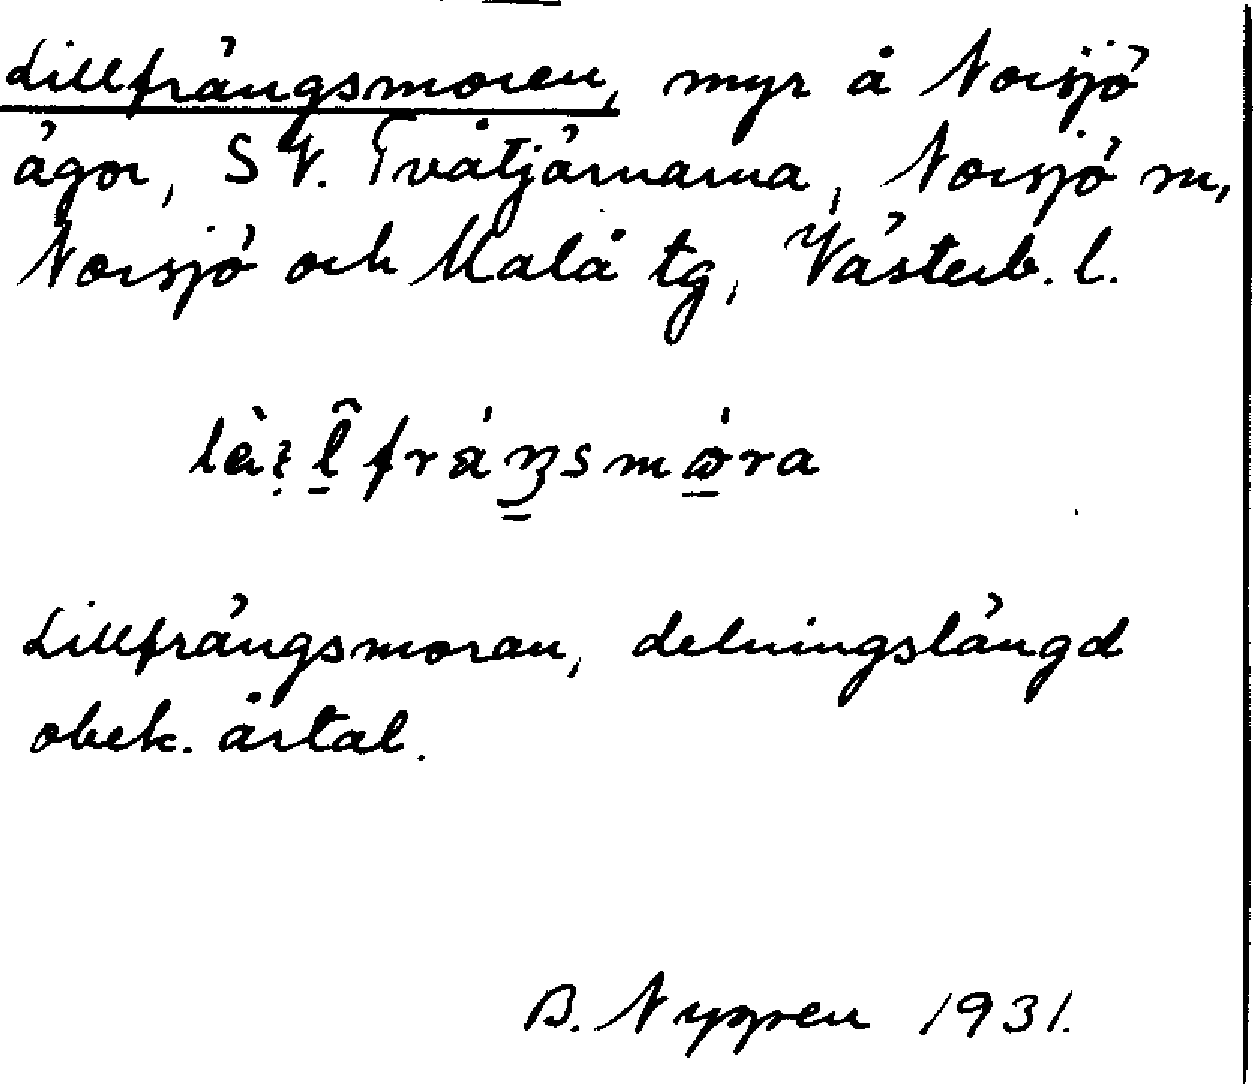 Lillfrängsmoren, myr å Norsjö
ägor, SV. Tvåtjärnarna, Norsjö sn,
Norsjö och Malå tg, Västerb. l.
Lillfrängsmoran, delningslängd
obek. årtal.
B. Nygren 1931.